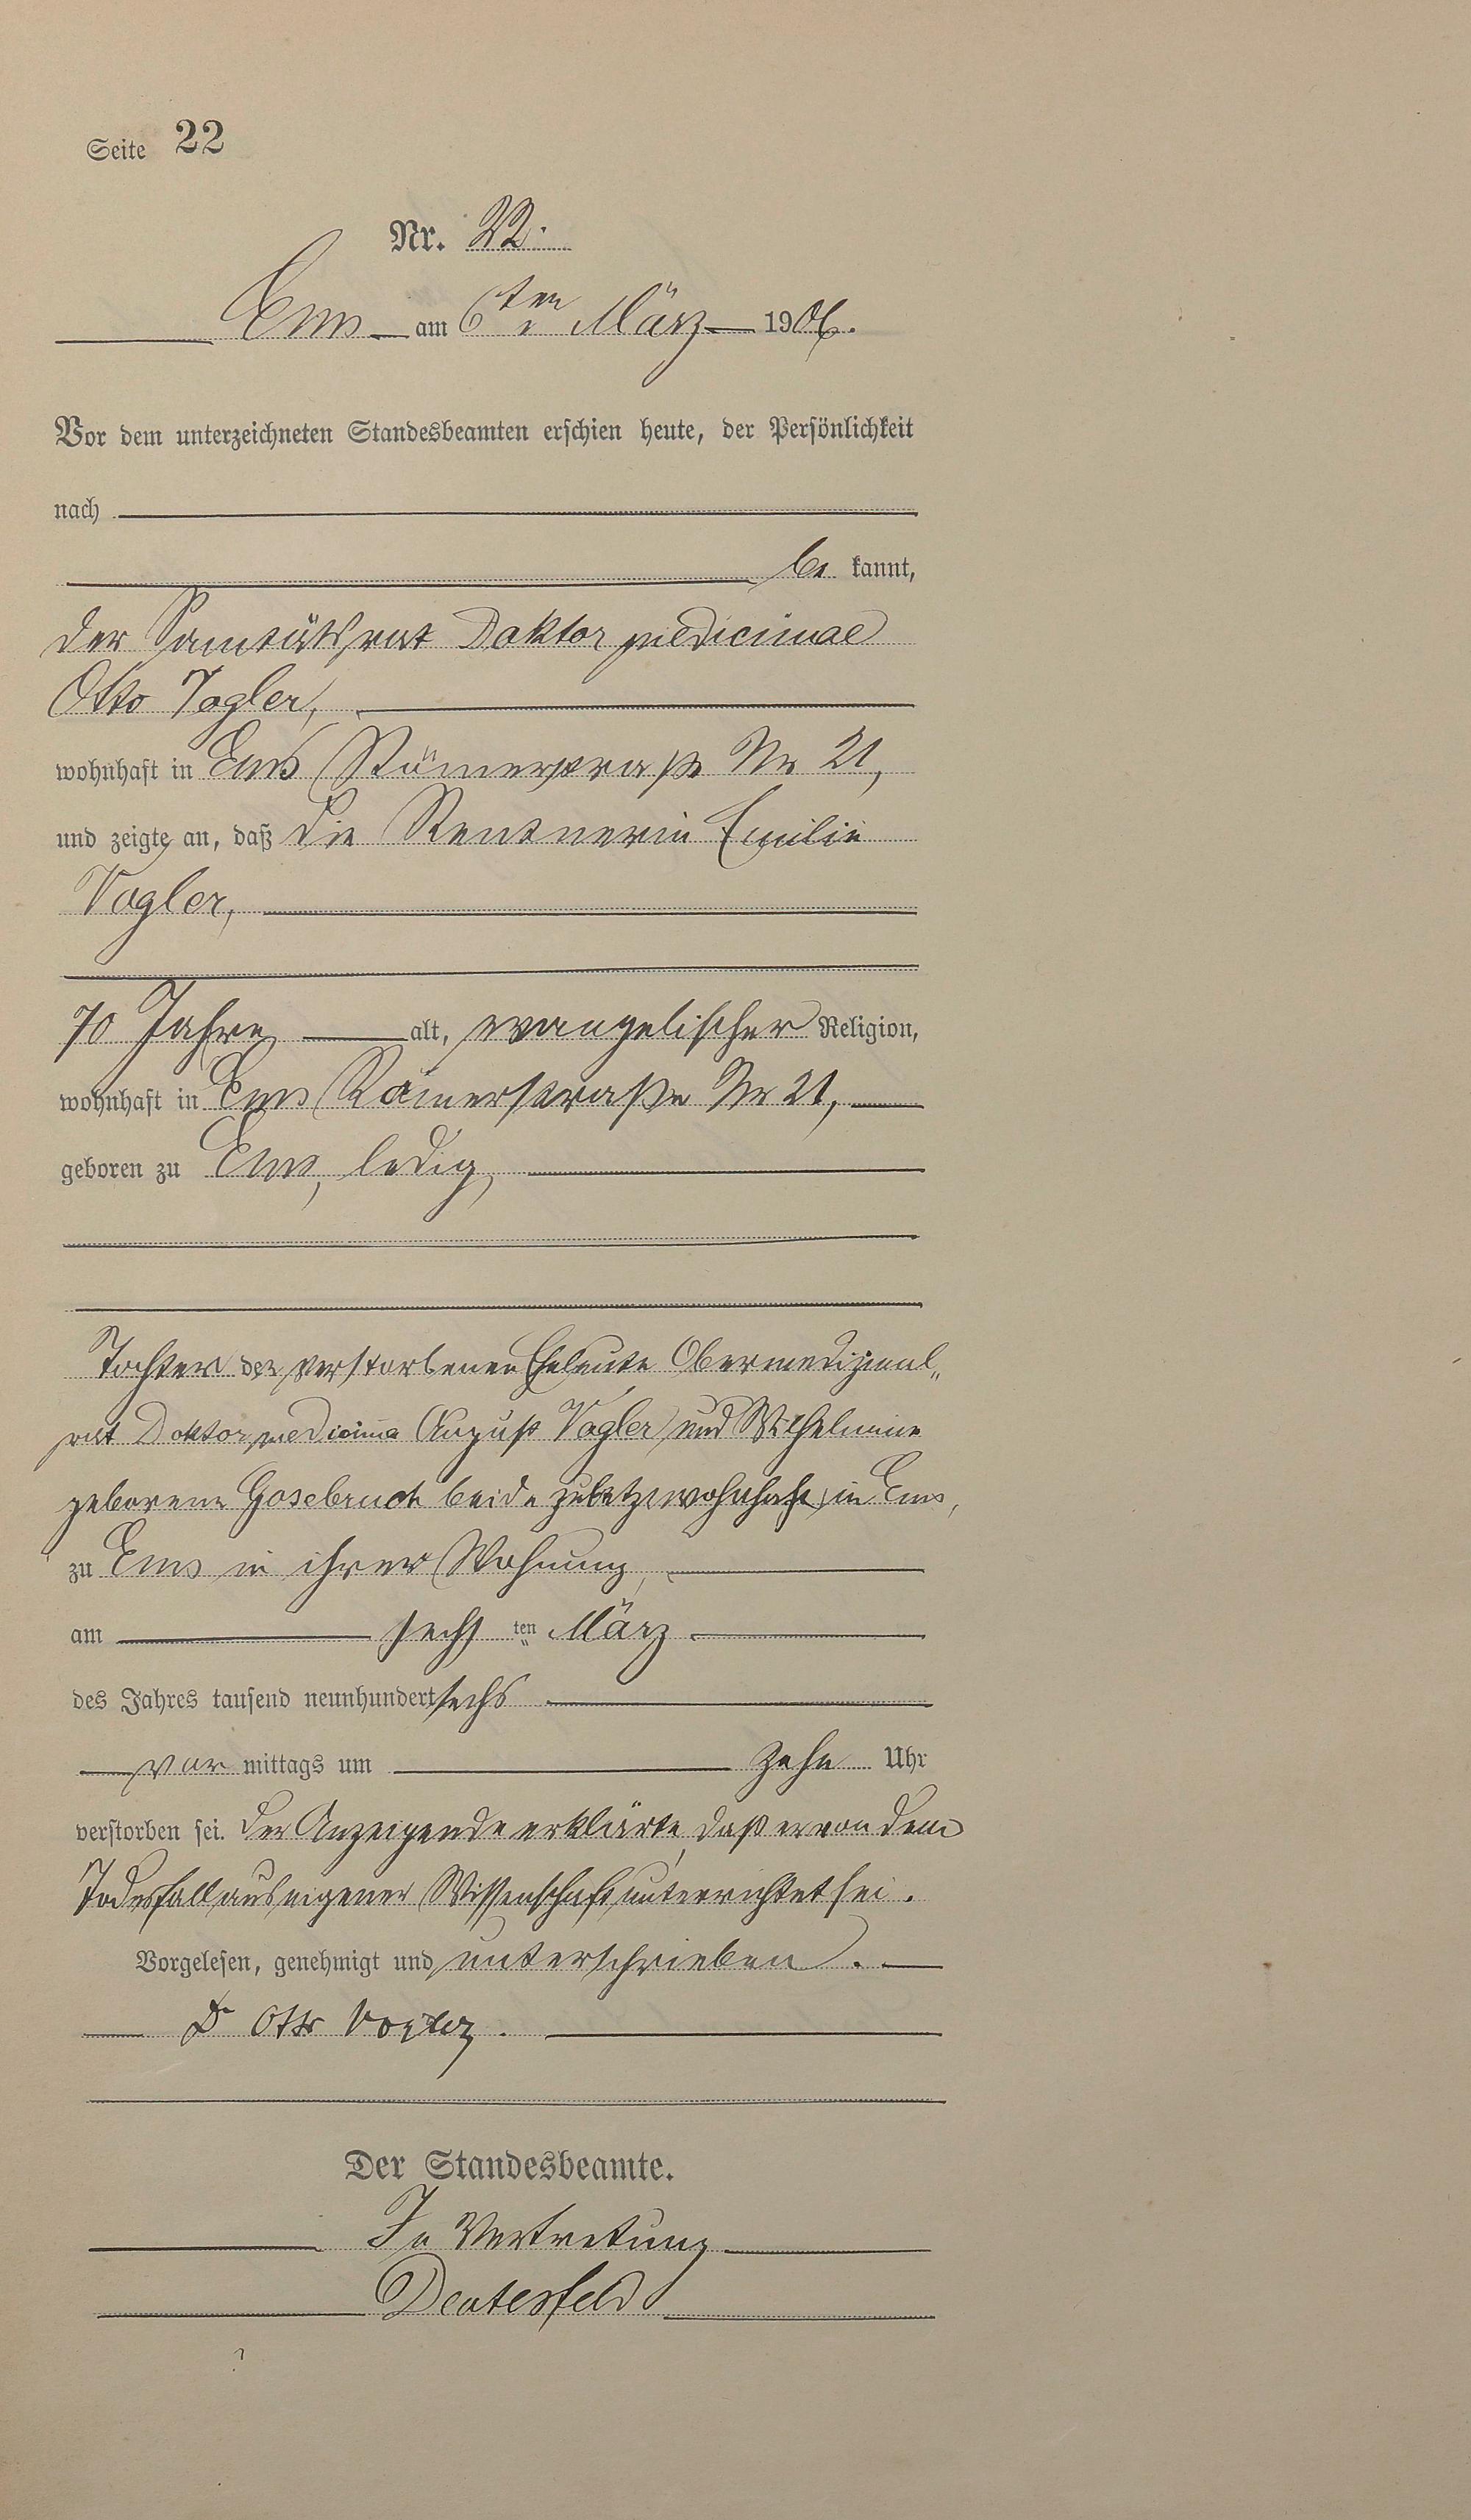 Seite 22
Nr. 22.
Ems am 6ten März 1906.
Vor dem unterzeichneten Standesbeamten erschien heute, der Persönlichkeit
nach
be kannt,
der Sanitätsrat Doktor medicinae
Otto Vogler,
wohnhaft in Ems Römerstraße Nr 21,
und zeigte an, daß die Rentnerin Emilie
Vogler,
70 Jahre alt, evangelischer Religion,
wohnhaft in Ems Römerstraße Nr 21,
geboren zu Ems, ledig,
Tochter der verstorbenen Eheleute Obermedizinal„
rat Doktor medicina August Vogler und Wilhelmine
geborene Gosebruch beide zuletzt wohnhaft in Ems,
zu Ems in ihrer Wohnung,
am sechs ten März
des Jahres tausend neunhundert sechs
vor mittags um zehn Uhr
verstorben sei. Der Anzeigende erklärte, daß er von dem
Todesfall aus eigener Wissenschaft unterrichtet sei.
Vorgelesen, genehmigt und unterschrieben.
Dr Otto Vogler.
Der Standesbeamte.
In Vertretung